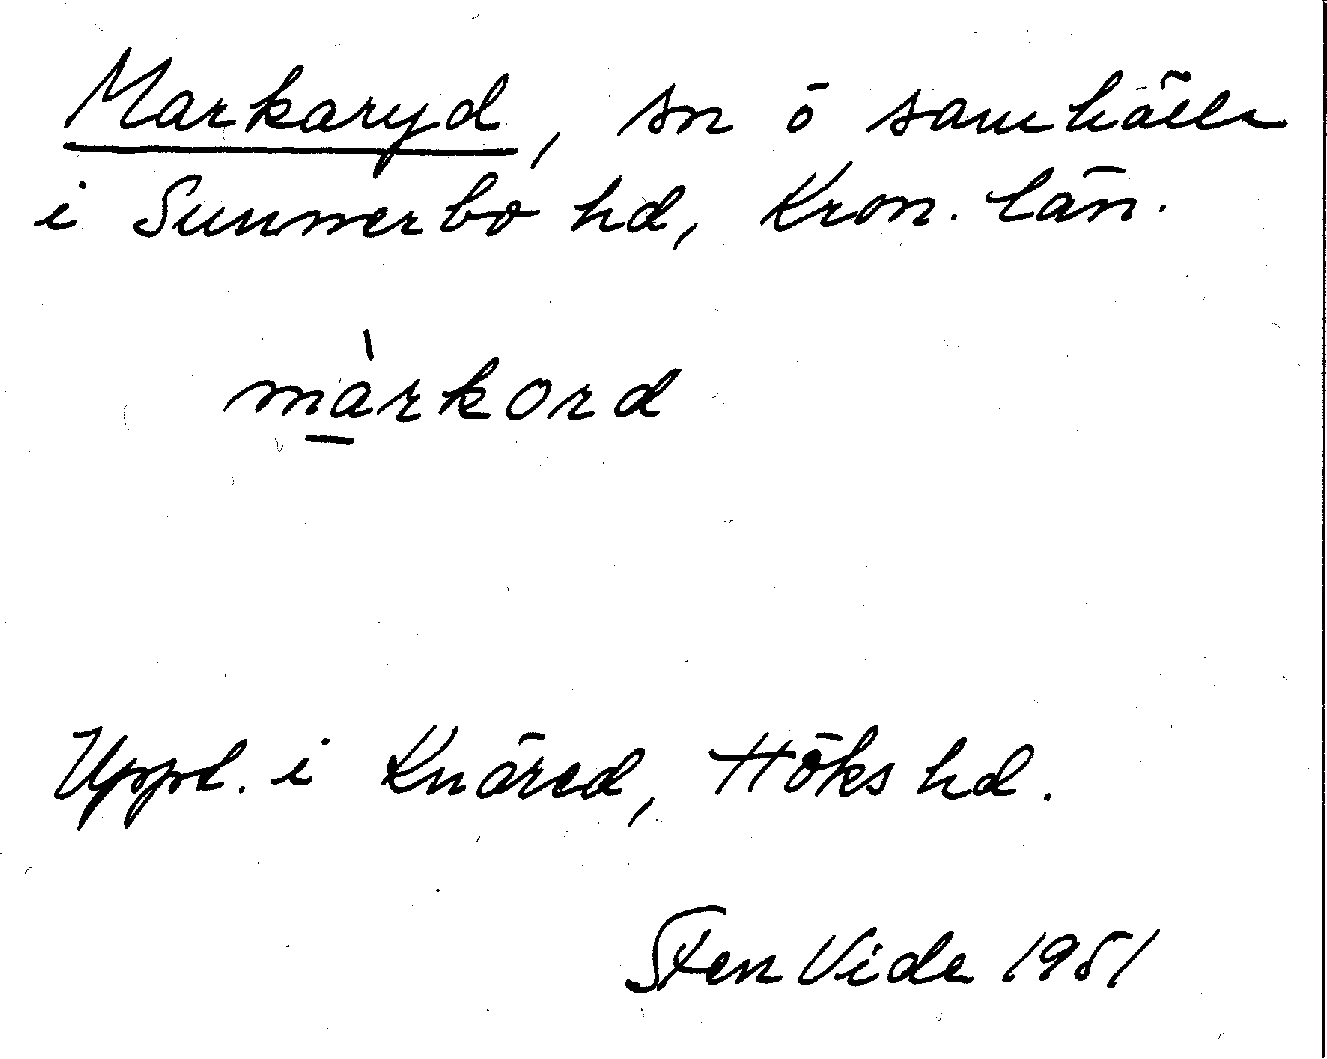 Markaryd, sn ō samhälle
i Sunnerbo hd, Kron. län.
màrkord
Uppt. i Knäred, Höks hd.
Sten Vide 1951